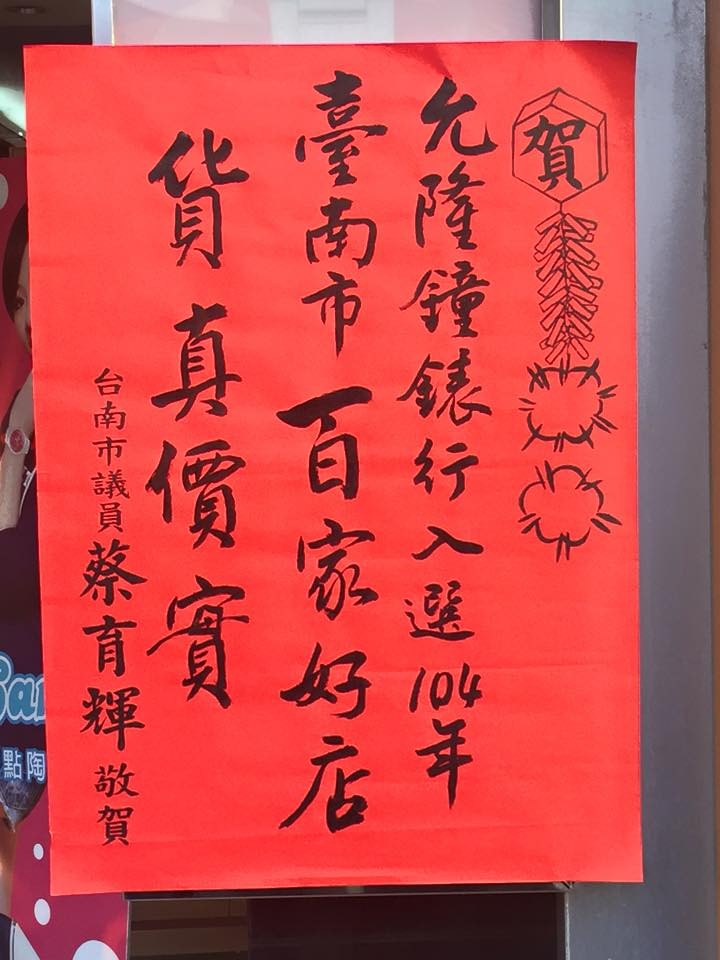 賀
允隆鐘錶行入選104年
臺南市百家好店
貨真價實
台南市議員蔡育輝敬賀
點陶